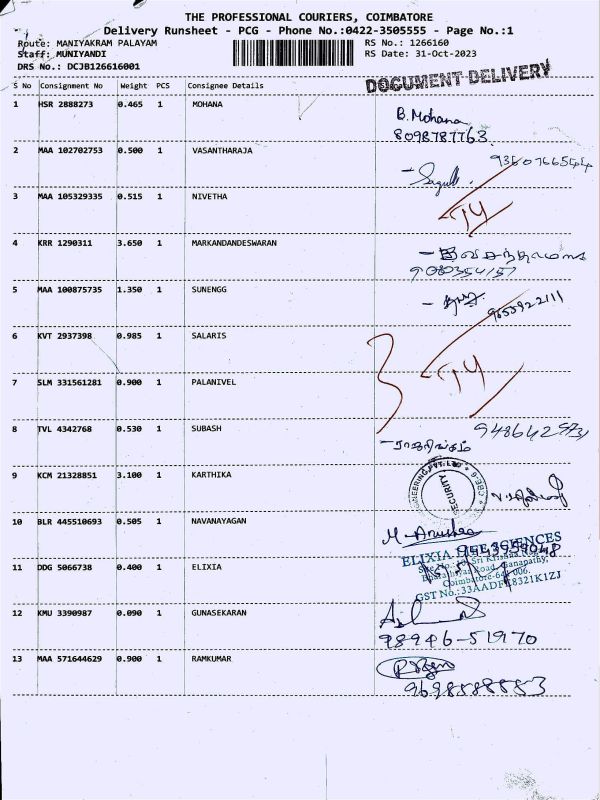 THE PROFESSIONAL COURIERS, COIMBATORE
Delivery Runsheet - PCG - Phone No.:0422-3505555 - Page No.:1
Route: MANIYAKRAM PALAYAM
RS No.: 1266160
Staff: MUNIYANDI
RS Date: 31-Oct-2023
DRS No.: DCJB126616001
DOCUMENT DELIVERY
S No Consignment No Weight PCS Consignee Details
1 HSR 2888273 0.465 1 MOHANA
B. Mohana
8098787763
2 MAA 102702753 0.500 1 VASANTHARAJA
3 MAA 105329335 0.515 1 NIVETHA
4 KRR 1290311 3.650 1 MARKANDANDESWARAN
9080354157
5 MAA 100875735 1.350 1 SUNENGG
9655922111
6 KVT 2937398 0.985 1 SALARIS
7 SLM 331561281 0.900 1 PALANIVEL
8 TVL 4342768 0.530 1 SUBASH
9 KCM 21328851 3.100 1 KARTHIKA
SECURITY
10 BLR 445510693 0.505 1 NAVANAYAGAN
M. Anushaa
11 DDG 5066738 0.400 1 ELIXIA
ELIXIA LIFE SCIENCES
Bharathiyar Road, Ganapathy,
Coimbatore-641 006.
12 KMU 3390987 0.090 1 GUNASEKARAN
98946-51970
13 MAA 571644629 0.900 1 RAMKUMAR